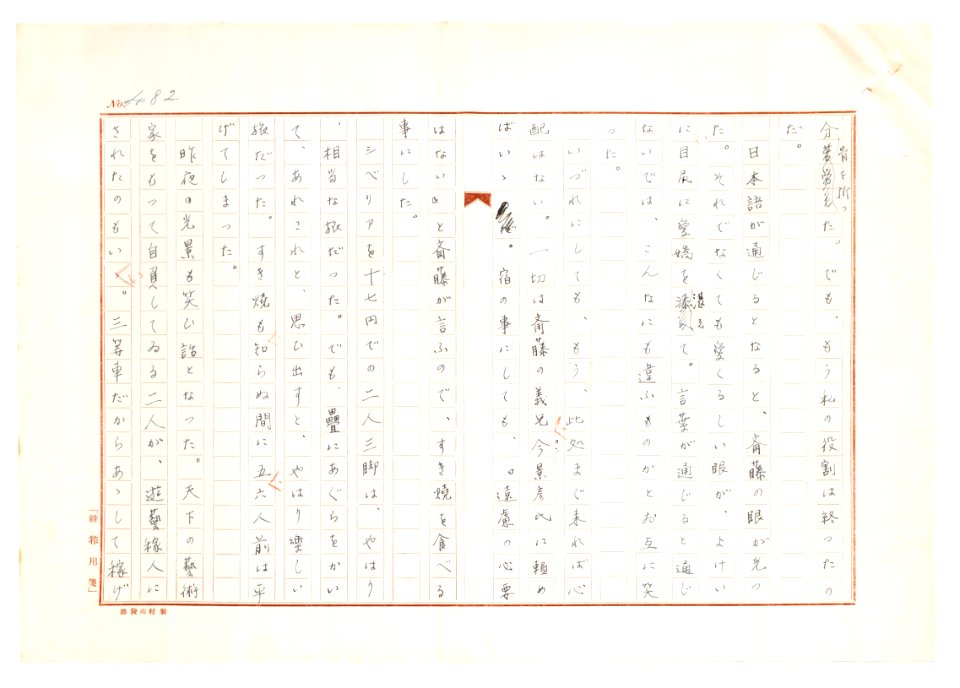 No. 82
骨を折つ
分苦労した。でも、もう私の役割は終つたの
だ。
日本語が通じるとなると、斎藤の眼が光つ
た。それでなくても愛くるしい眼が、よけい
に目尻に愛嬌を湛えて。言葉が通じると通じ
ないでは、こんなにも違ふものかとお互に笑
つた。
いづれにしても、もう、此処まで来れば心
配はない。一切は斎藤の義兄今景彦氏に頼め
ばいゝ。宿の事にしても、「遠慮の心要
はない」と斎藤が言ふので、すき燒を食べる
事にした。
シベリアを十七円での二人三脚は、やはり
、相当な旅だつた。でも、疊にあぐらをかい
て、あれこれと、思ひ出すと、やはり樂しい
旅だつた。すき燒も知らぬ間に五六人前は平
げてしまつた。
昨夜の光景も笑ひ話となつた。天下の藝術
家をもつて自負してゐる二人が、遊藝稼人に
されたのもいゝ。三等車だからあゝして稼げ
池袋西村製